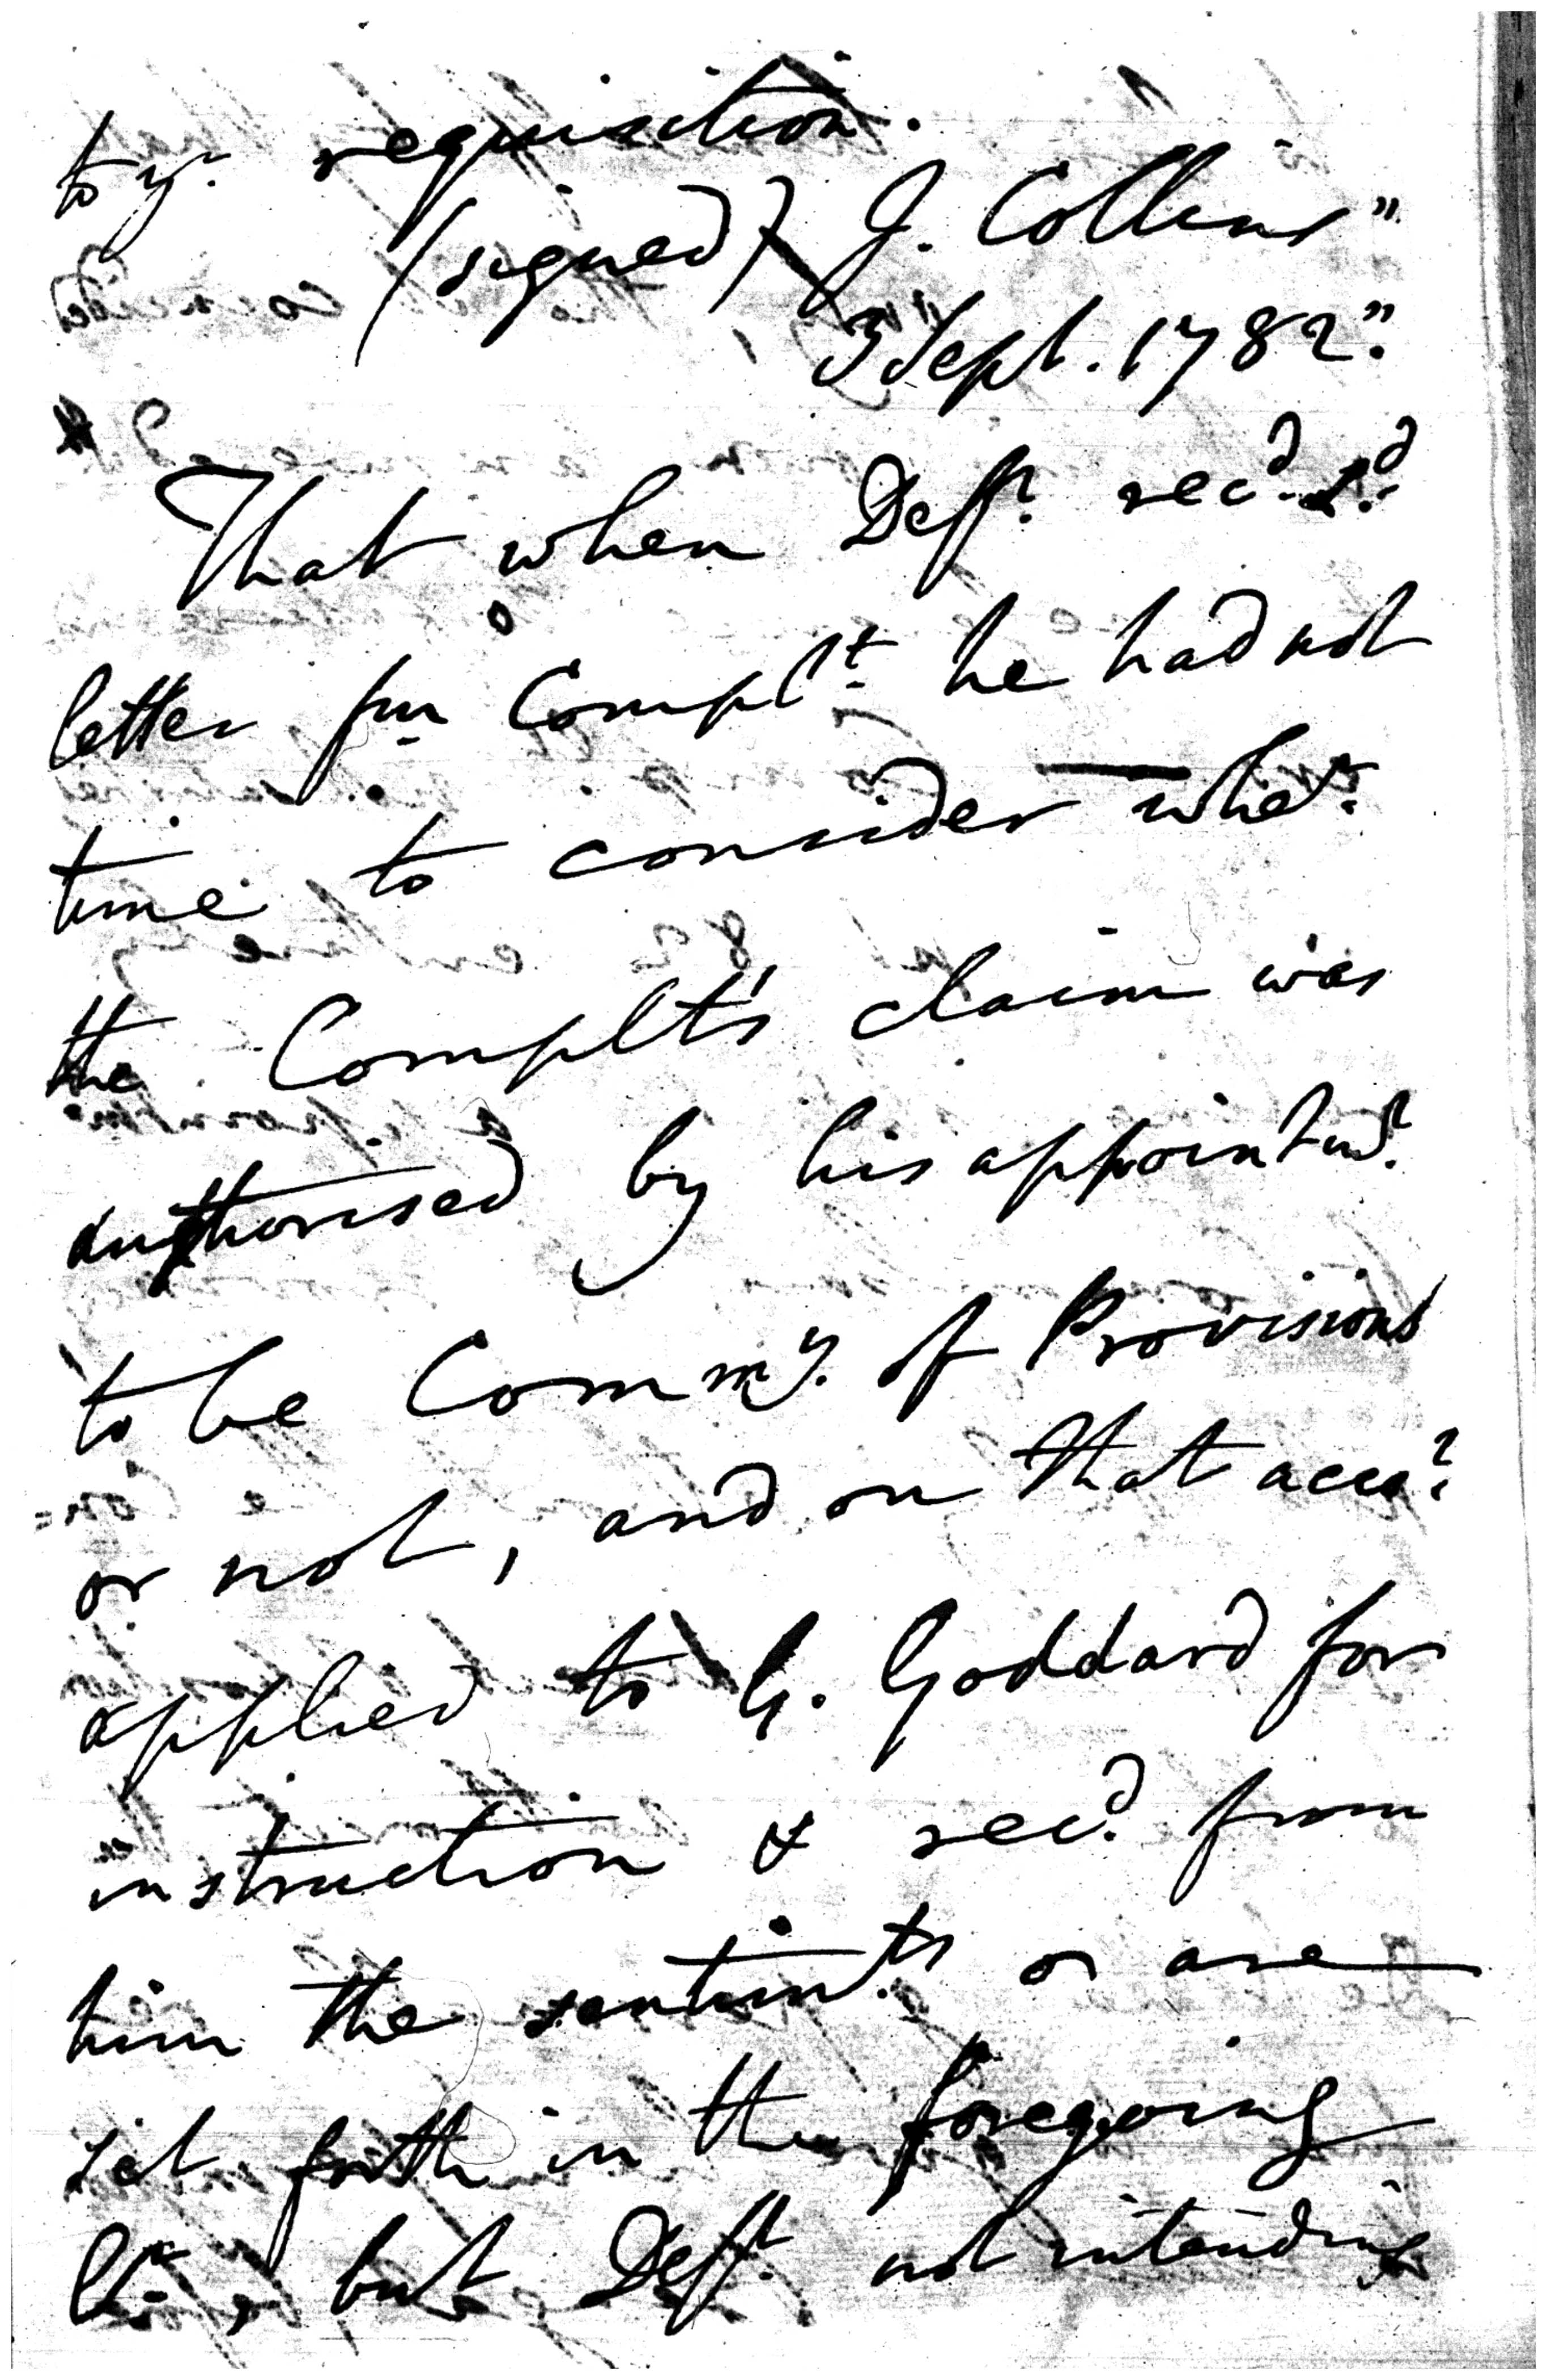 to yr. requisition.
(signed) J. Collins"
3 Sept. 1782".
That when Defft. recd. sd.
letter fm Complt. he had not
time to consider whetr.
the Complts' claim was
authorised by his appointmt.
to be Commy. of Provisions
or not, and on that acco.t
applied to G. Goddard for
instruction & recd. from
him the sentimts. as are
set forth in the foregoing
lr., but Defft. not intending